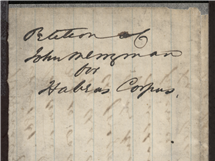 Petition of
John Merryman
for
Habeas Corpus.